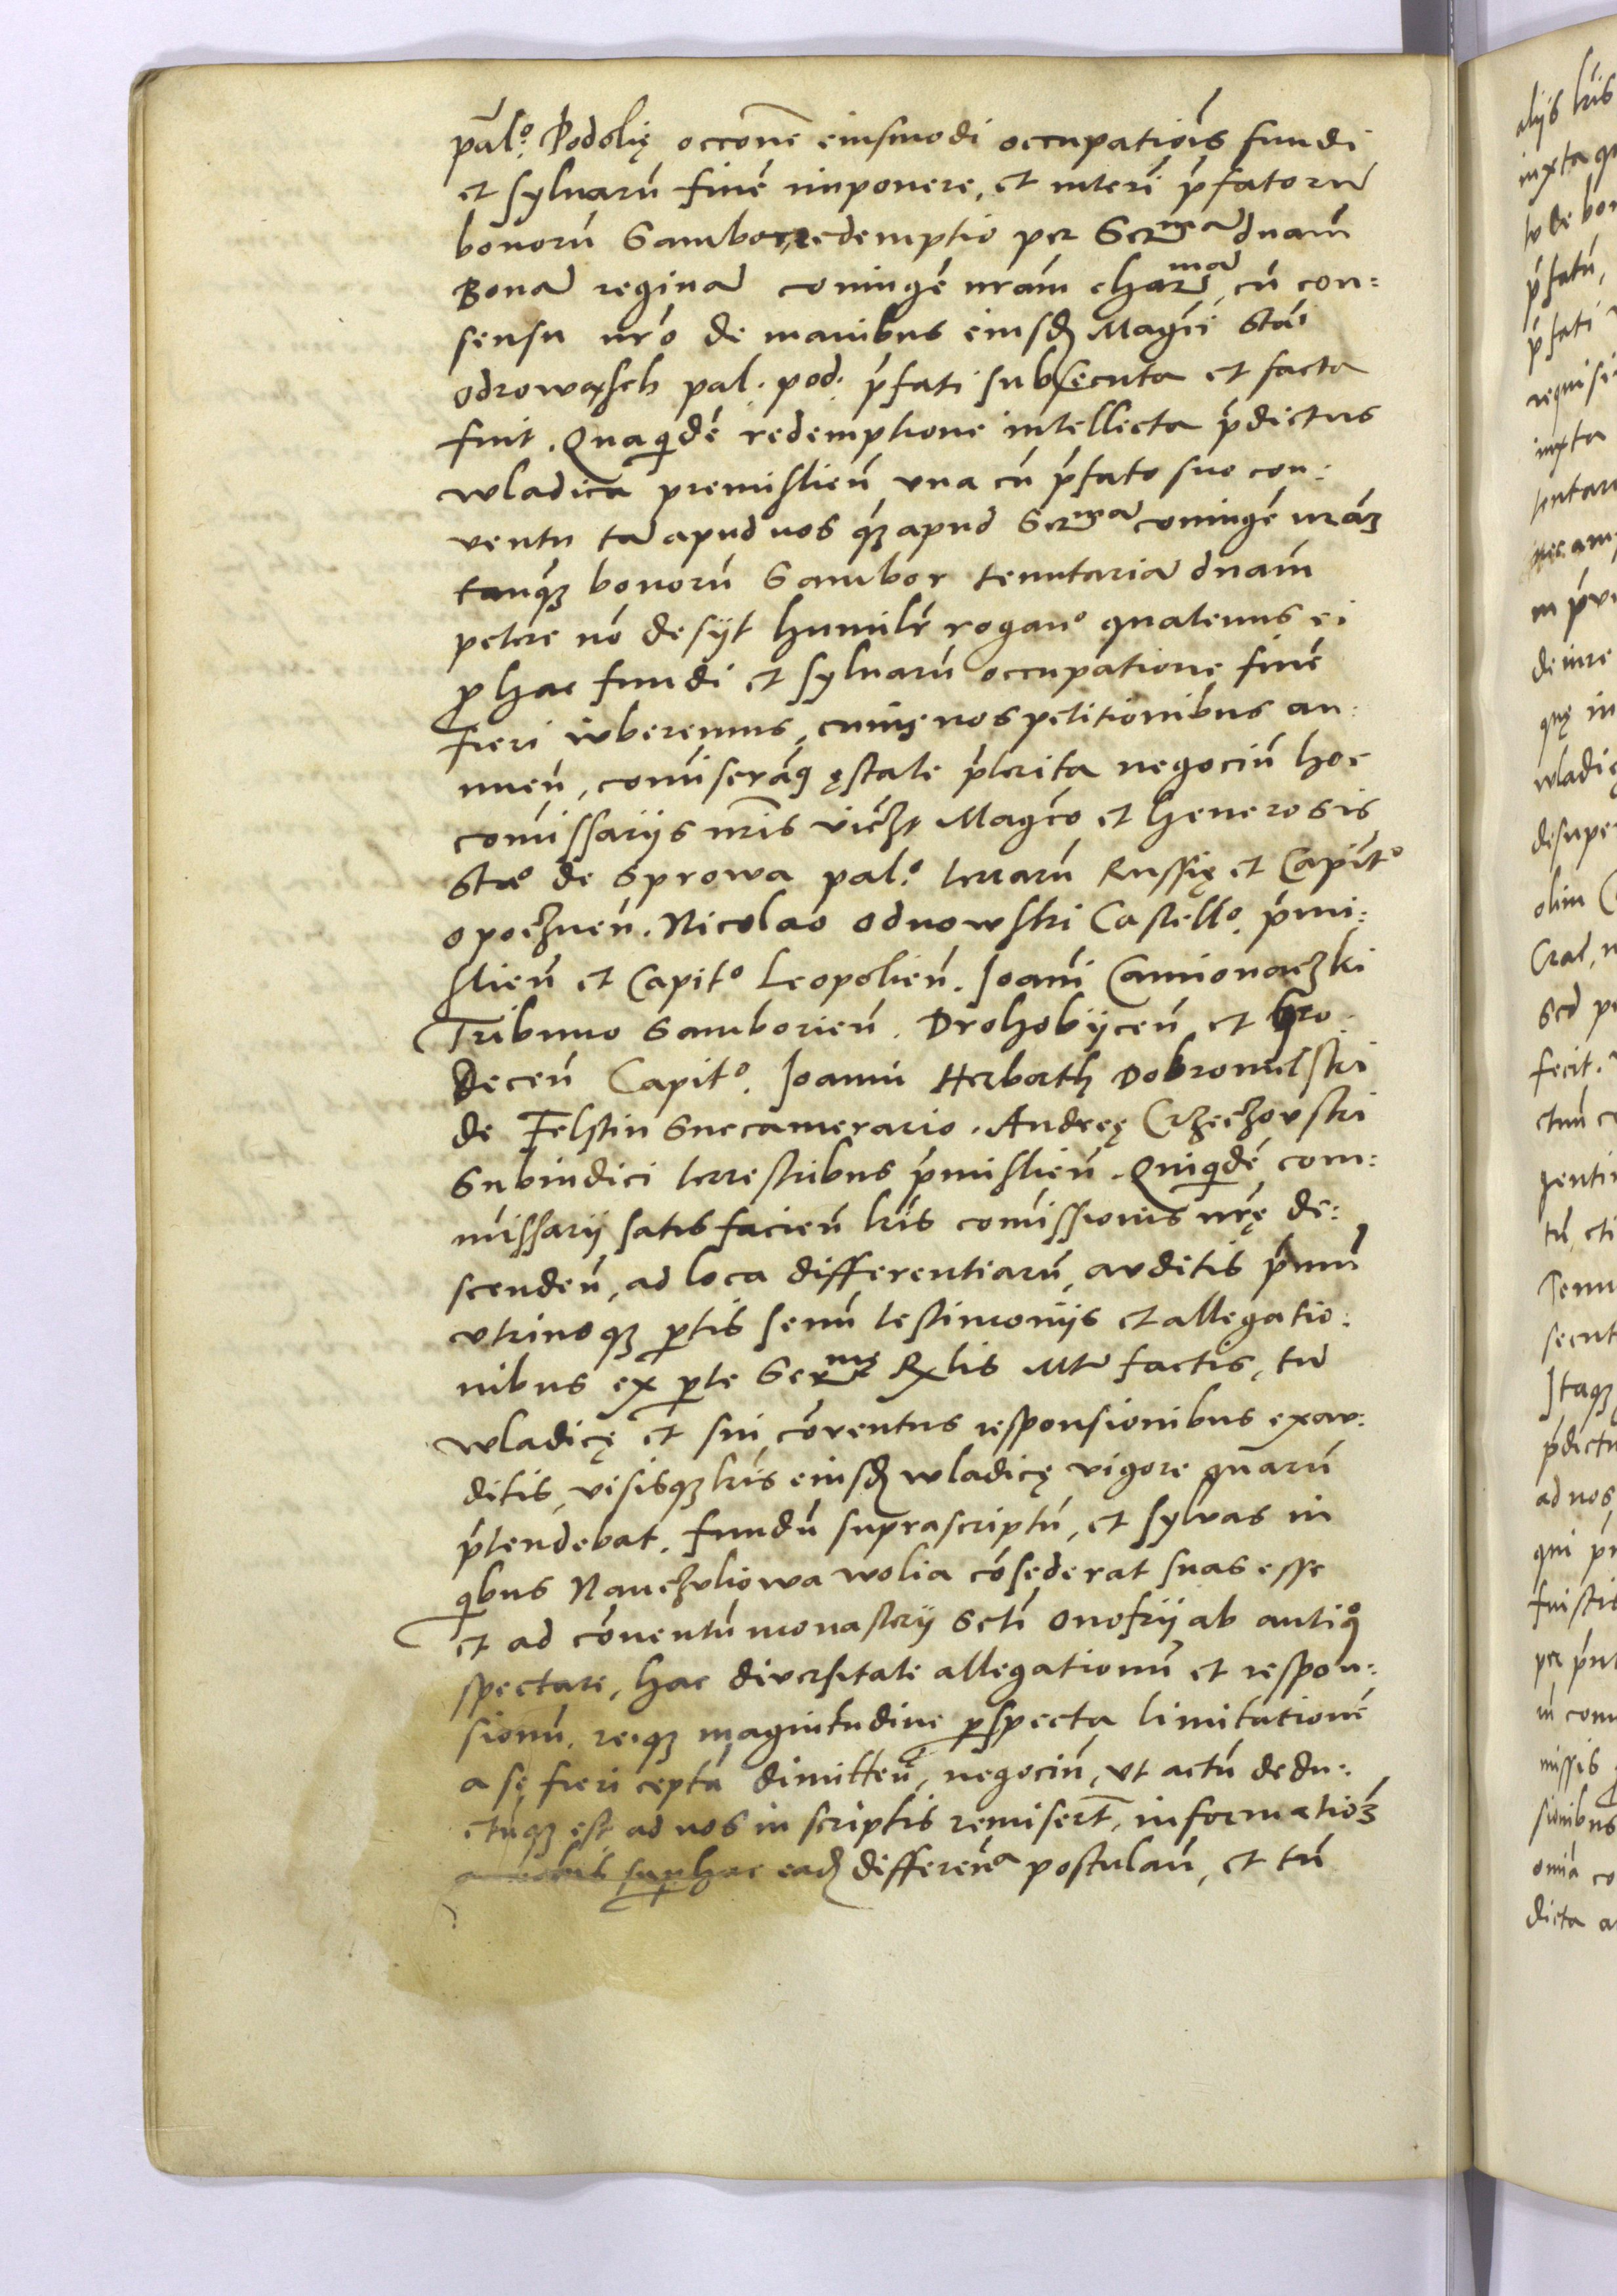 pal.º Podolię occõne eiusmodi occupatiõis fundi
et syluarũ finẽ imponere, et interĩ p̃fatorũ
bonorũ Sambor, redemptio per Serᵐᵃ dnam̃
Bonã reginã coniugẽ nr̃am charᵐᵃ, cũ con:
sensu nr̃o de manibus eiusd Magci Stai
Odrowąsch pal. pod. p̃fati subsecuta et facta
fuit. Quaqdẽ redemptione intellecta p̃dictus
wladica premislieñ vna cũ p̃fato suo con:
uentu tã apud nos q̃ꝫ apud Serᵐᵃ coniugẽ nr̃aꝫ
tanq̃ꝫ bonorũ Sambor tenutariã dnam̃
petere nõ desijt humilr̃ roganº quatenus ei
ꝓ hac fundi et syluarũ occupatione finẽ
fieri iuberemus, cuius nos petitionibus an:
nueñ, comiserãq ęstate p̃terita negociũ hoc
comissarijs nr̃is viꝫt Magco et Generosis
Staº de Sprowa pal.º terrarũ Russię et Capitº
opoczneñ. Nicolao Odnowski Castellº. p̃mi:
slieñ et Capitº Leopolieñ. Joanĩ Camionaczki
Tribuno Samborieñ. Drohobijceñ et gro
deceñ Capitº. Joanni Herborth Dobromilski
de Felstin Succamerario. Andreę Crzeczovski
Subiudici terrestribus p̃mislieñ. Quiqdẽ com:
missarij satisfacieñ lr̃is comissionis nr̃ę de:
scendeñ, ad loca differentiarũ, auditis p̃mũ
vtrinsqꝫ ꝑtis senũ testimonijs et allegatio:
nibus ex ꝑte Serᵐę Rxlis Mti factis, tũ
wladicę et sui cõventus responsionibus exau:
ditis, visisqꝫ lr̃is eiusd wladicę vigore quarũ
p̃tendebat. fundũ suprascriptũ, et syluas in
qbus Nanczvliowa wolia cõsederat suas esse
et ad cõuentũ monasterij Scti Onofrij ab antiqº
spectare, hac diuersitate allegationũ et respon:
sionũ, reiqꝫ magnitudine ꝑspecta, limitationẽ
a sę fieri ceptã dimitteñ, negociũ, vt actũ dedu:
ctũqꝫ est ad nos in scriptis remisert̃, informatioꝫ
a nobis suꝑ hac ead differeñᵃ postulañ, et tũ